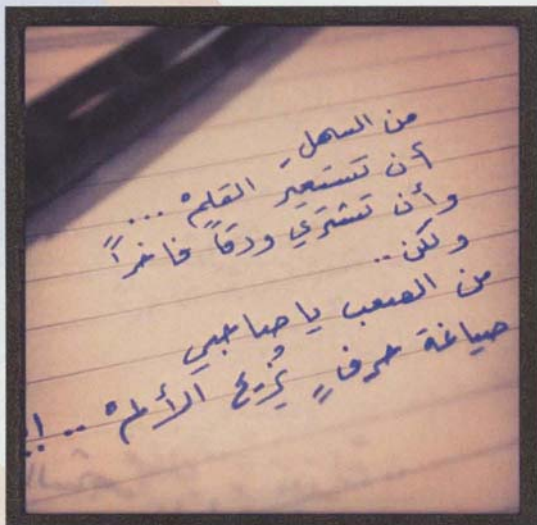 من السهل
أن تستعيرَ القلمْ ...
وأن تشتري ورقاً فاخراً
ولكن ..
من الصعب يا صاحبي
صياغة حرفٍ يُزيح الألمْ .. !!